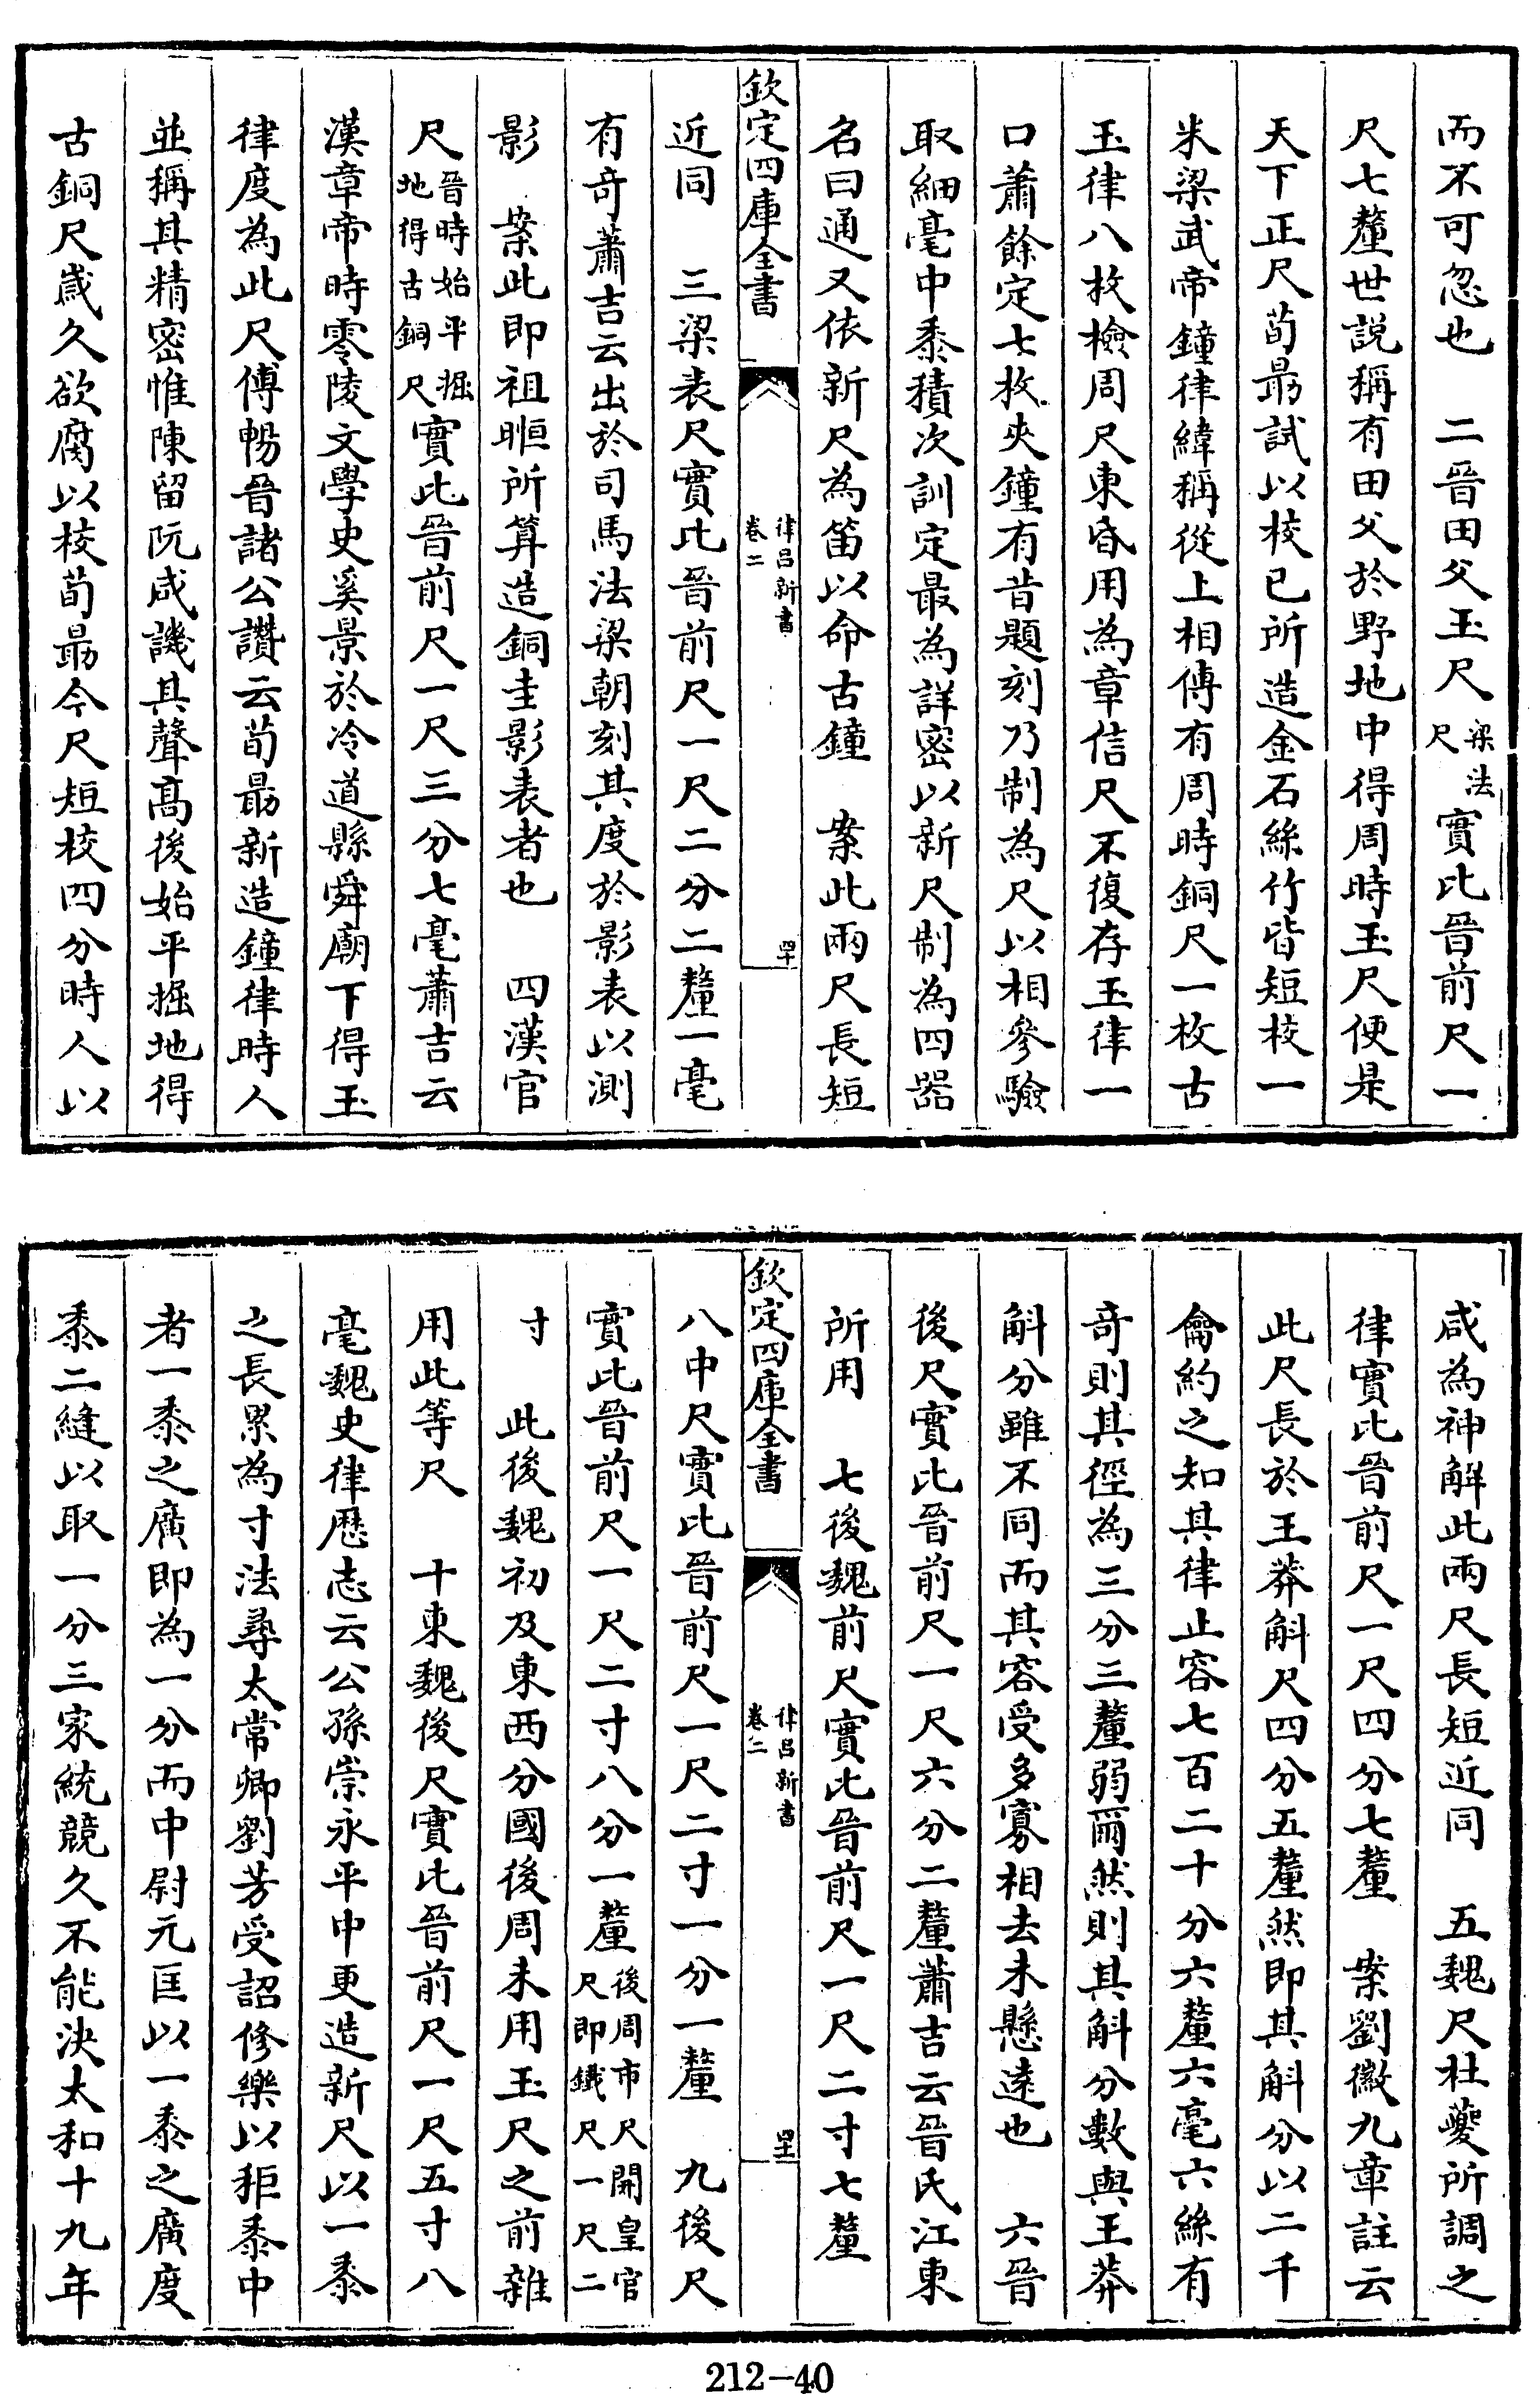 而不可忽也　二晉田父玉尺梁法尺實比晉前尺一
尺七釐世説稱有田父於野地中得周時玉尺便是
天下正尺荀勗試以校已所造金石絲竹皆短校一
米梁武帝鐘律緯稱從上相傳有周時銅尺一枚古
玉律八枚檢周尺東昏用為章信尺不復存玉律一
口蕭餘定七枚夾鐘有昔題刻乃制為尺以相參驗
取細毫中黍積次訓定最為詳密以新尺制為四器
名曰通又依新尺為笛以命古鐘　案此兩尺長短
欽定四庫全書
律吕新書
卷二
四十
近同　三梁表尺實比晉前尺一尺二分二釐一毫
有奇蕭吉云出於司馬法梁朝刻其度於影表以測
影　案此即祖暅所算造銅圭影表者也　四漢官
尺晉時始平掘地得古銅尺實比晉前尺一尺三分七毫蕭吉云
漢章帝時零陵文學史奚景於冷道縣舜廟下得玉
律度為此尺傅暢晉諸公讚云荀勗新造鐘律時人
並稱其精密惟陳留阮咸譏其聲高後始平掘地得
古銅尺歲久欲腐以校荀勗今尺短校四分時人以
咸為神解此兩尺長短近同　五魏尺杜夔所調之
律實比晉前尺一尺四分七釐　案劉徽九章註云
此尺長於王莽斛尺四分五釐然即其斛分以二千
龠約之知其律止容七百二十分六釐六毫六絲有
奇則其徑為三分三釐弱爾然則其斛分數與王莽
斛分雖不同而其容受多寡相去未懸遠也　六晉
後尺實比晉前尺一尺六分二釐蕭吉云晉氏江東
所用　七後魏前尺實比晉前尺一尺二寸七釐
欽定四庫全書
律吕新書
卷二
四十一
八中尺實比晉前尺一尺二寸一分一釐　九後尺
實比晉前尺一尺二寸八分一釐後周市尺開皇官尺即鐵尺一尺二
寸　此後魏初及東西分國後周未用玉尺之前雜
用此等尺　十東魏後尺實比晉前尺一尺五寸八
毫魏史律歷志云公孫崇永平中更造新尺以一黍
之長累為寸法尋太常卿劉芳受詔修樂以秬黍中
者一黍之廣即為一分而中尉元匡以一黍之廣度
黍二縫以取一分三家統競久不能決太和十九年
212-40